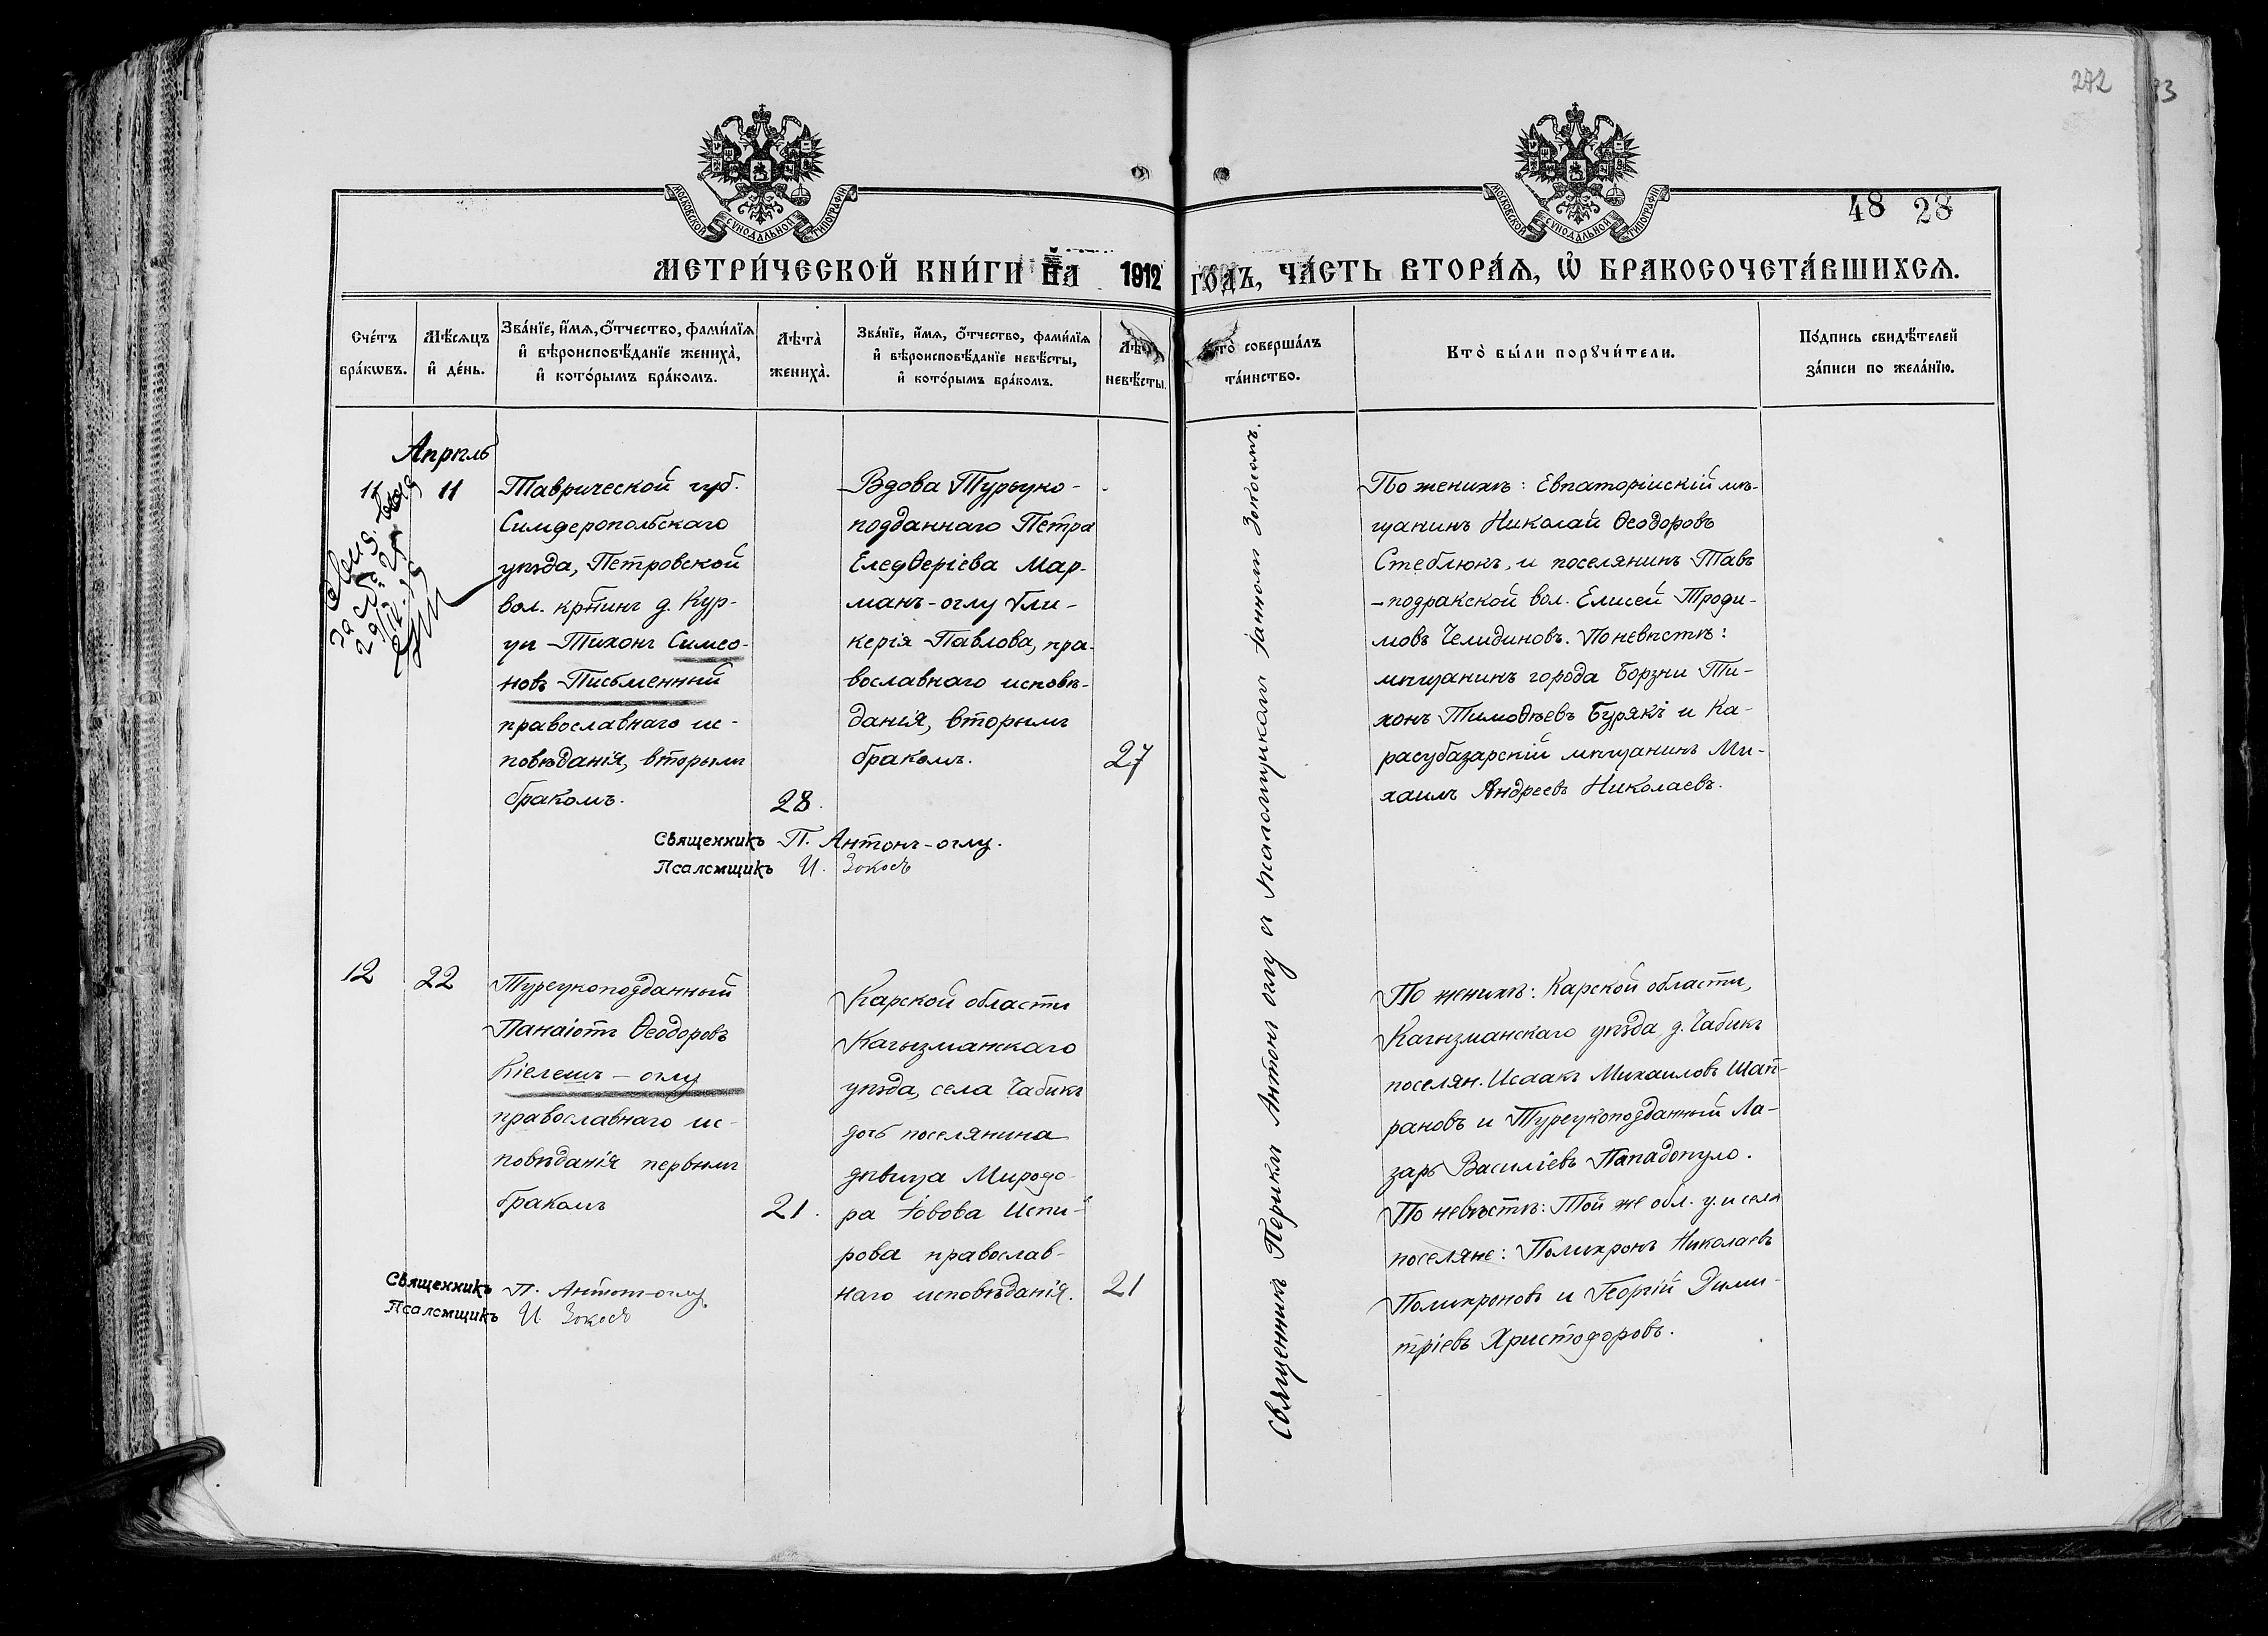 272
48 28
МОСКОВСКОЙ СѴНОДАЛЬНОЙ ТИПОГРАФІИ
МОСКОВСКОЙ СѴНОДАЛЬНОЙ ТИПОГРАФІИ
МЕТРИ́ЧЕСКОЙ КНИ́ГИ НА 1912 ГОДЪ, ЧА́СТЬ ВТОРА́Ѧ, Ѡ҆ БРАКОСОЧЕТА́ВШИХСѦ.
Сче́тъ
бра́кѡвъ.
Мѣ́сѧцъ
и҆ де́нь.
Зва́нїе, и҆́мѧ, ѻ҆́тчество, фами́лїѧ
и҆ вѣроисповѣ́данїе жениха̀,
и҆ кото́рымъ бра́комъ.
Лѣта̀
жениха̀.
Зва́нїе, и҆́мѧ, ѻ҆́тчество, фами́лїѧ
и҆ вѣроисповѣ́данїе невѣ́сты,
и҆ кото́рымъ бра́комъ.
невѣ́сты.
совершáлъ
тáинство.
Кто̀ бы́ли порꙋчи́тели.
По́дпись свидѣ́телей
зáписи по желáнїю.
Апрѣль
11
11
Таврической губ.
Симферопольскаго
уѣзда, Петровской
вол. кр̅нинъ д. Кур-
цы Тихонъ Симео-
новъ Письменный
православнаго ис-
повѣданія, вторымъ
бракомъ.
28.
Вдова Турецко-
подданнаго Петра
Елевѳеріева Мар-
манъ-оглу Гли-
керія Павлова, пра-
вославнаго исповѣ-
данія, вторымъ
бракомъ.
27
По женихѣ: Евпаторійскій мѣ-
щанинъ Николай Ѳеодоровъ
Стеблюкъ, и поселянинъ Тавъ
-подракской вол. Елисей Трофи-
мовъ Челидиновъ. По невѣстѣ:
мѣщанинъ города Борзни Ти-
хонъ Тимоѳеевъ Бурякъ и Ка-
расубазарскій мѣщанинъ Ми-
хаилъ Андреевъ Николаевъ.
Священникъ П. Антонъ-оглу.
Псаломщикъ И. Зокосъ
12
22
Турецкоподданный
Панаіотъ Ѳеодоровъ
Кіелешъ-оглу
православнаго ис-
повѣданія первымъ
бракомъ
21.
Карской области
Кагызманскаго
уѣзда, села Чабикъ
дочь поселянина
дѣвица Мирофо-
ра Іовова Испи-
рова православ-
наго исповѣданія.
21
По женихѣ: Карской области,
Кагызманскаго уѣзда, д. Чабикъ
поселян. Исаакъ Михаиловъ Шап-
рановъ и Турецкоподданный Ла-
зарь Василіевъ Пападопуло.
По невѣстѣ: Той же обл. у. и села
поселяне: Поликронъ Николаевъ
Поликроновъ и Георгій Дими-
тріевъ Христофоровъ.
Священникъ П. Антонъ-оглу
Псаломщикъ И. Зокосъ
Священникъ Периклъ Антонъ оглу съ псаломщикомъ Іанномъ Зокосомъ.